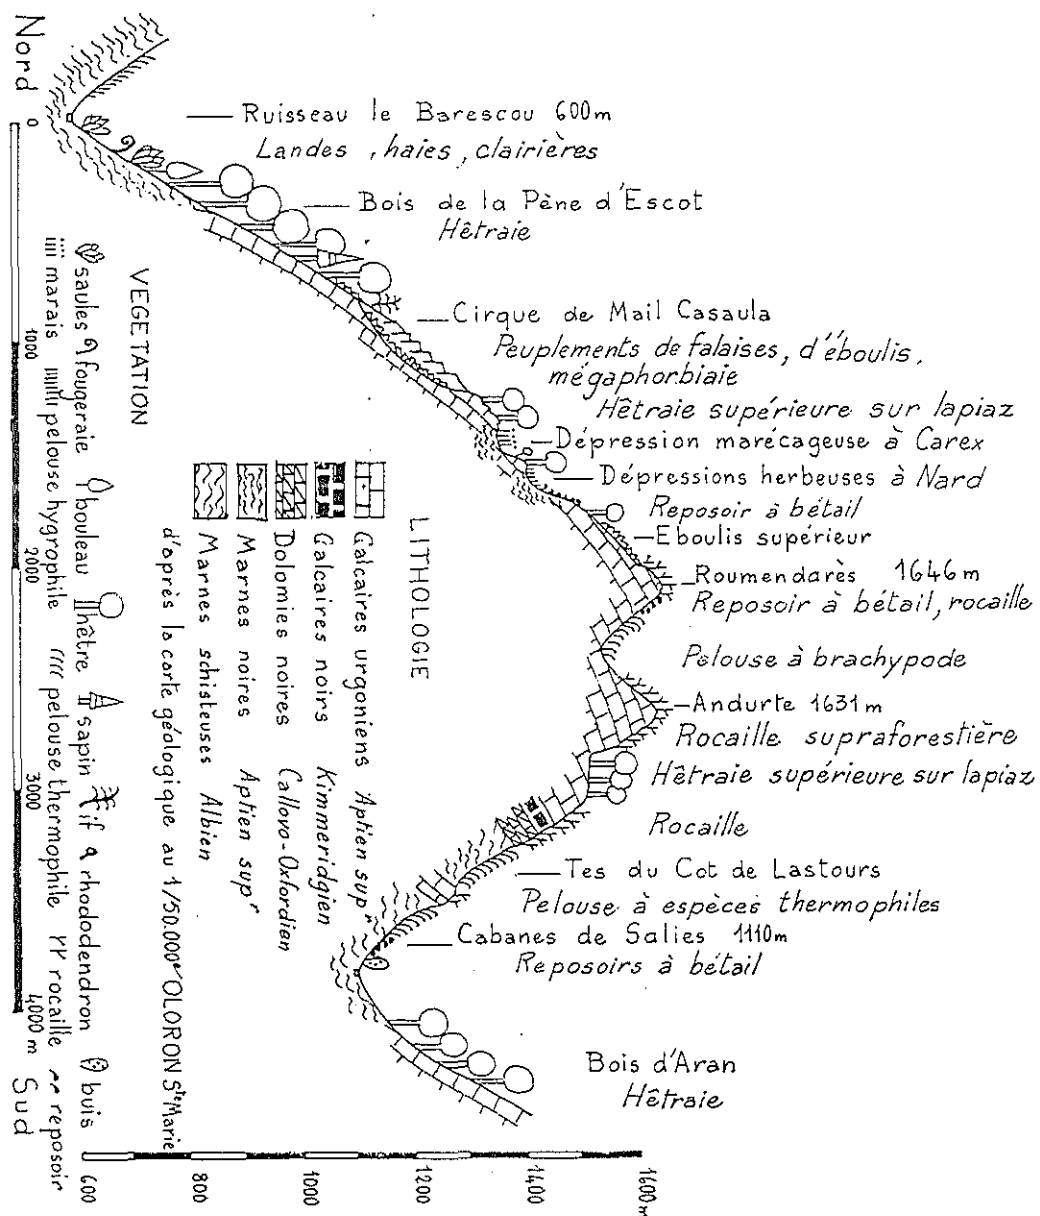 Nord
Ruisseau le Barescou 600m
Landes, haies, clairières
Bois de la Pène d'Escot
Hêtraie
Cirque de Mail Casaula
Peuplements de falaises, d'éboulis,
mégaphorbiaie
Hêtraie supérieure sur lapiaz
Dépression marécageuse à Carex
Dépressions herbeuses à Nard
Reposoir à bétail
Eboulis supérieur
Roumendarès 1646m
Reposoir à bétail, rocaille
Pelouse à brachypode
Andurte 1631m
Rocaille supraforestière
Hêtraie supérieure sur lapiaz
Rocaille
Tes du Cot de Lastours
Pelouse à espèces thermophiles
Cabanes de Salies 1110m
Reposoirs à bétail
Bois d'Aran
Hêtraie
LITHOLOGIE
Galcaires urgoniens Aptien supr
Galcaires noirs Kimmeridgien
Dolomies noires Callovo-Oxfordien
Marnes noires Aptien supr
Marnes schisteuses Albien
d'après la carte géologique au 1/50.000e OLORON Ste Marie
VEGETATION
saules fougeraie bouleau hêtre sapin if rhododendron buis
marais pelouse hygrophile pelouse thermophile rocaille reposoir
0 1000 2000 3000 4000m
Sud
600 800 1000 1200 1400 1600m